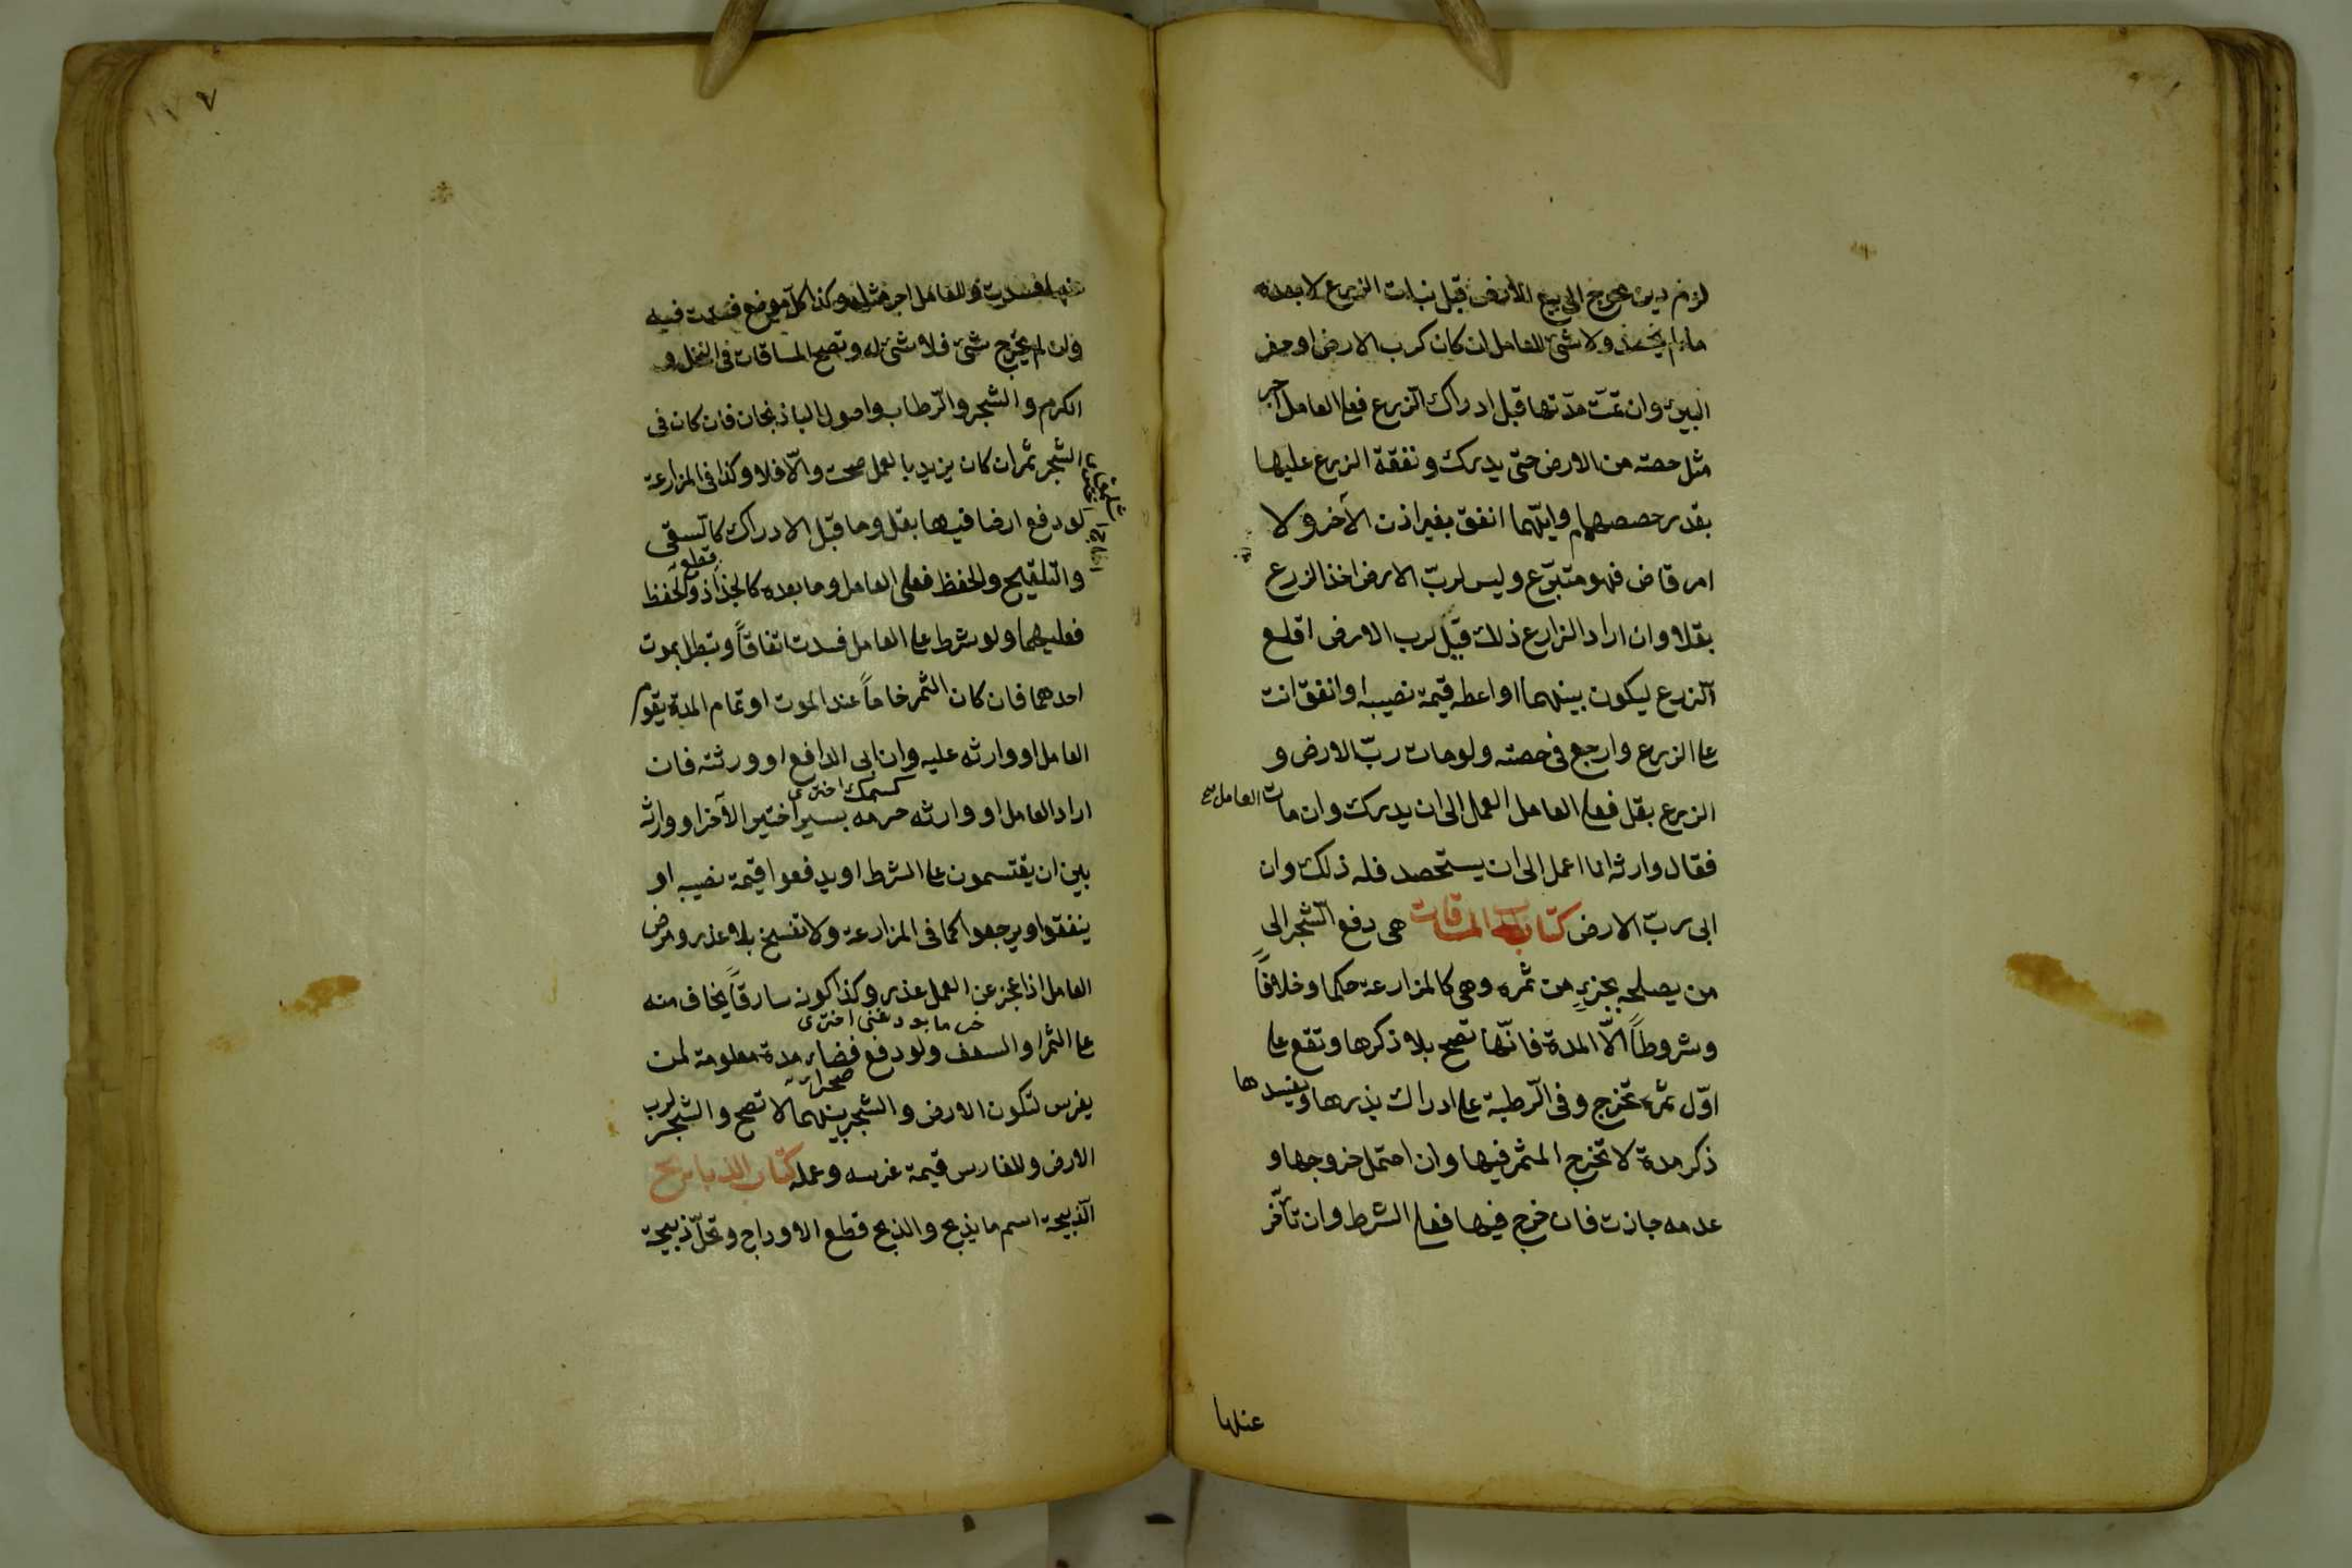 لزم دين محوج الى بيع الارض قبل نبات الزرع لا بعده
مالم يحصد ولا شئ للعامل ان كان كرب الارض او حفر
البئر وان تمّت مدّتها قبل ادراك الزرع فعلى العامل اجر
مثل حصته من الارض حتى يدرك ونفقة الزرع عليهما
بقدر حصصهما وايّهما انفق بغير اذن الآخر ولا
امر قاض فهو متبرّع وليس لربّ الارض اخذ الزرع
بقلا وان اراد الزارع ذلك قيل لرب الارض اقلع
الزرع ليكون بينهما او اعطه قيمة نصيبه او انفق انت
على الزرع وارجع فى حصته ولو مات ربّ الارض و
الزرع بقل فعلى العامل العمل الى ان يدرك وان مات العامل
فقال وارثه انا اعمل الى ان يستحصد فله ذلك وان
ابى ربّ الارض كتاب المساقات هى دفع الشجر الى
من يصلحه بجزءٍ من ثمره وهى كالمزارعة حكما وخلافاً
وشروطاً الاّ المدة فانّها تصح بلا ذكرها وتقع على
اوّل ثمرة تخرج وفى الرّطبة على ادراك بذرها ويفسدها
ذكر مدة لا تخرج المثمر فيها وان احتمل خروجها و
عدمه جازت فان خرج فيها فعلى الشرط وان تأخّر
عنها
عنها فسدت وللعامل اجر مثله وكذا كل موضع فسدت فيه
وان لم يخرج شئ فلا شئ له وتصح المساقات فى النخل و
الكرم والشجر والرّطاب واصول الباذنجان فان كان فى
الشجر ثمر ان كان يزيد بالعمل صحت والاّ فلا وكذا فى المزارعة
لو دفع ارضا فيها بقل وما قبل الادراك كالسقى
قطع
والتلقيح والحفظ فعلى العامل وما بعده كالجذاذ والحفظ
فعليهما ولو شرط على العامل فسدت اتفاقاً وتبطل بموت
احدهما فان كان الثمر خاماً عند الموت او تمام المدة يقوم
العامل او وارثه عليه وان ابى الدافع او ورثته فان
كسمك اخترى
اراد العامل او وارثه صرمه بسراً خيّر الآخر او وارثه
بين ان يقتسمون على الشرط او يدفعوا قيمة نصيبه او
ينفقوا ويرجعوا كما فى المزارعة ولا تفسخ بلا عذر ومرض
العامل اذا عجز عن العمل عذر وكذا كونه سارقاً يخاف منه
خرما بوداغنى اخترى
على الثمر او السعف ولو دفع فضاء مدة معلومة لمن
صحرا
يغرس لتكون الارض والشجر بينهما لا تصح والشجر لرب
الارض وللغارس قيمة غرسه وعمله كتاب الذبايح
الذبيحة اسم ما يذبح والذبح قطع الاوداج وتحلّ ذبيحة